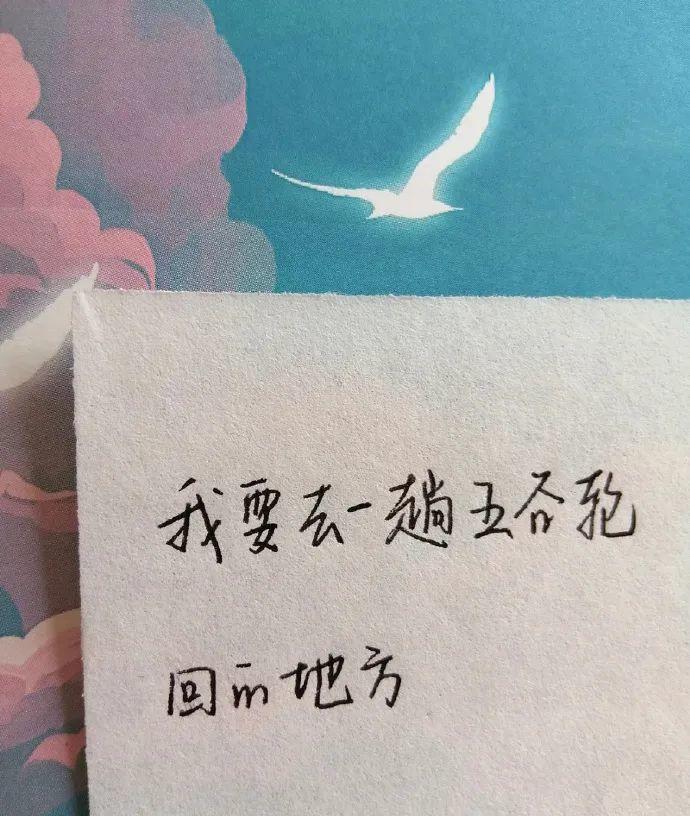 我要去一趟五谷轮
回的地方